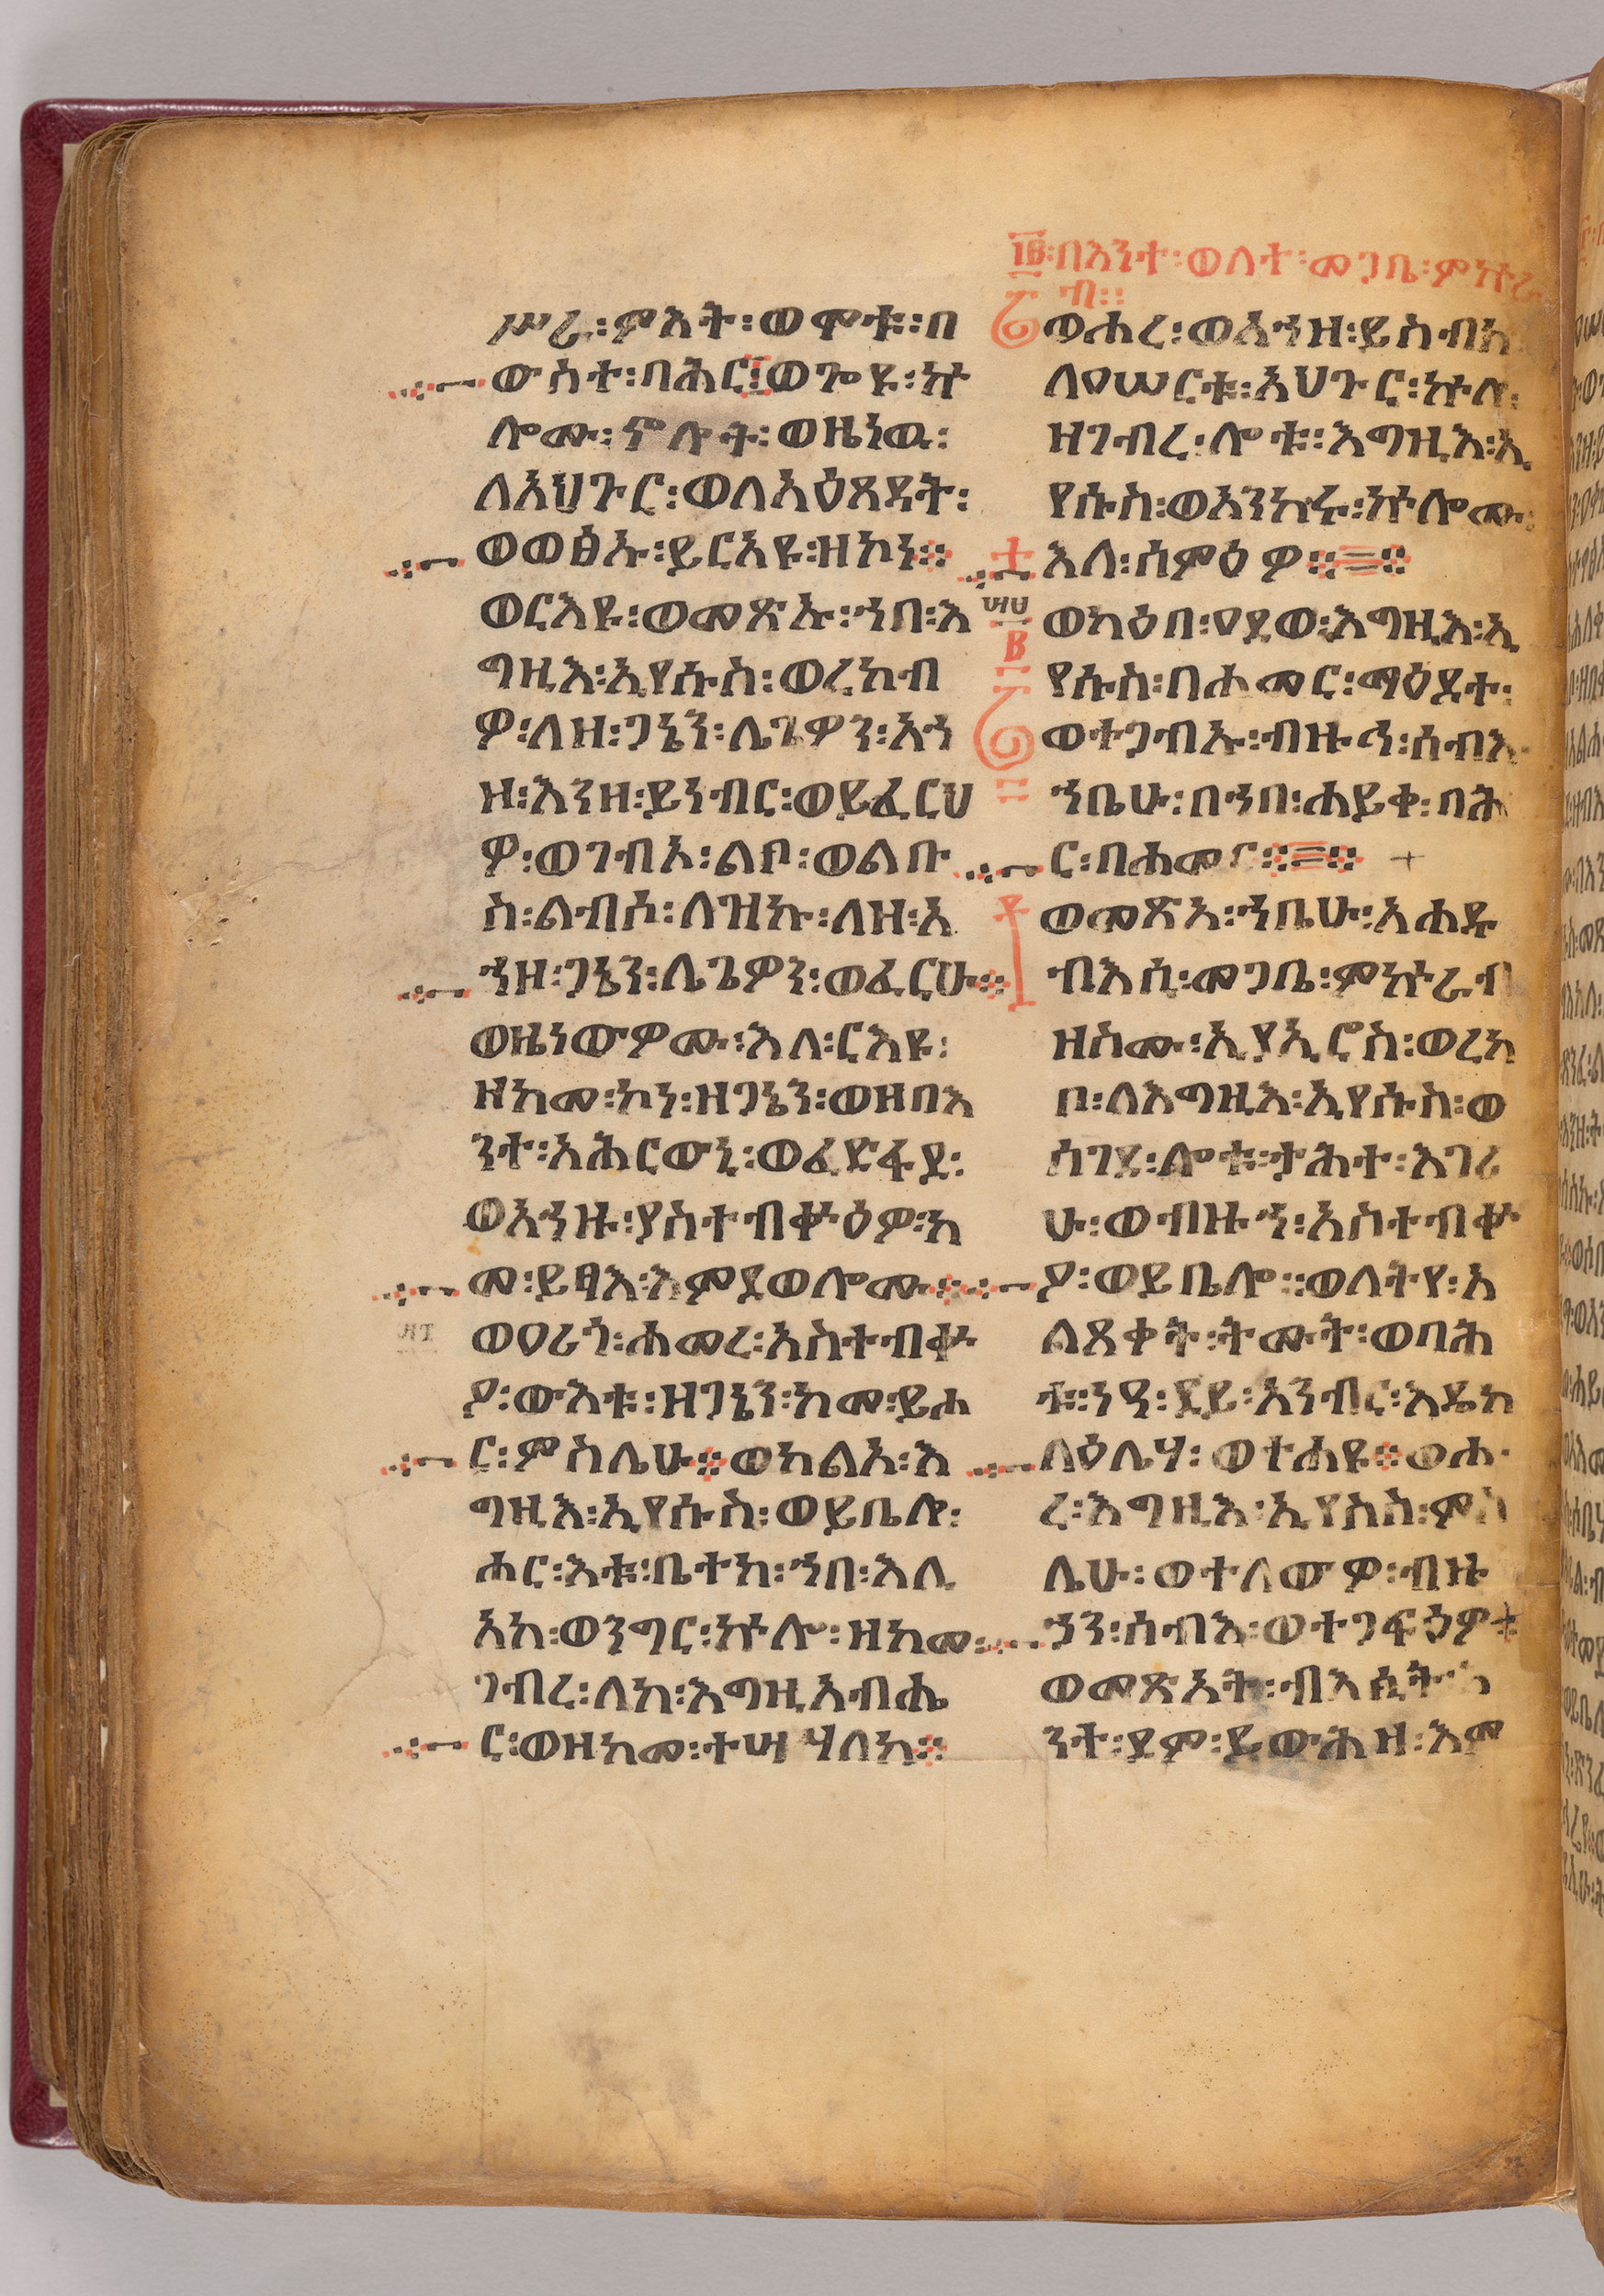 ሥራ፡ምእት፡ወሞቱ፡በ
ውስተ፡በሕር፡ወጐዩ፡ኵ
ሎሙ፡ኖሎት፡ወዜነዉ፡
ለአህጉር፡ወለአዕጻዳት፡
ወወፅኡ፡ይርአዩ፡ዘኮነ።
ወርእዩ፡ወመጽኡ፡ኀበ፡እ
ግዚእ፡ኢየሱስ፡ወረከብ
ዎ፡ለዝ፡ጋኔን፡ሌጌዎን፡አኀ
ዝ፡እንዘ፡ይነብር፡ወይፈርህ
ዎ፡ወገብአ፡ልቦ፡ወልቡ
ስ፡ልብሶ፡ለዝኩ፡ለዘ፡አ
ኀዘ፡ጋኔን፡ሌጌዎን፡ወፈርሁ።
ወዜነውዎሙ፡እለ፡ርእዩ፡
ዘከመ፡ኮነ፡ዘጋኔን፡ወዘበእ
ንተ፡አሕርውኒ፡ወፈድፋደ፡
ወአኀዙ፡ያስተብቍዕዎ፡ከ
መ፡ይፃእ፡እምደወሎሙ።
ወዐሪጎ፡ሐመረ፡አስተብቍ
ዖ፡ውእቱ፡ዘጋኔን፡ከመ፡ይሐ
ር፡ምስሌሁ።ወከልአ፡እ
ግዚእ፡ኢየሱስ፡ወይቤሎ፡
ሐር፡እቱ፡ቤተከ፡ኀበ፡እሊ
አከ፡ወንግር፡ኵሎ፡ዘከመ፡
ገብረ፡ለከ፡እግዚአብሔ
ር፡ወዘከመ፡ተሣሃለከ።
፲፪፡በእንተ፡ወለተ፡መጋቤ፡ምኵራ
ብ፡፡
ወሐረ፡ወአኀዘ፡ይስብክ
ለዐሠርቱ፡አህጉር፡ኵሎ፡
ዘገብረ፡ሎቱ፡እግዚእ፡ኢ
የሱስ፡ወአንከሩ፡ኵሎሙ፡
እለ፡ሰምዕዎ።=።
ወካዕበ፡ዐደወ፡እግዚእ፡ኢ
የሱስ፡በሐመር፡ማዕደተ፡
ወተጋብኡ፡ብዙኅ፡ሰብእ
ኀቤሁ፡በኀበ፡ሐይቀ፡በሕ
ር፡በሐመር።=።
ወመጽአ፡ኀቤሁ፡አሐዱ
ብእሲ፡መጋቤ፡ምኵራብ
ዘስሙ፡ኢያኢሮስ፡ወረከ
ቦ፡ለእግዚእ፡ኢየሱስ፡ወ
ሰገደ፡ሎቱ፡ታሕተ፡እገሪ
ሁ፡ወብዙኀ፡አስተብቍ
ዖ፡ወይቤሎ፡፡ወለትየ፡አ
ልጸቀት፡ትሙት፡ወባሕ
ቱ፡ነዓ፡ደይ፡አንብር፡እዴከ
ላዕሌሃ፡ወተሐዩ።ወሐ
ረ፡እግዚእ፡ኢየሱስ፡ምስ
ሌሁ፡ወተለውዎ፡ብዙ
ኃን፡ሰብእ፡ወተጋፍዕዎ።
ወመጽአት፡ብእሲት፡እ
ንተ፡ደም፡ይውሕዝ፡እም